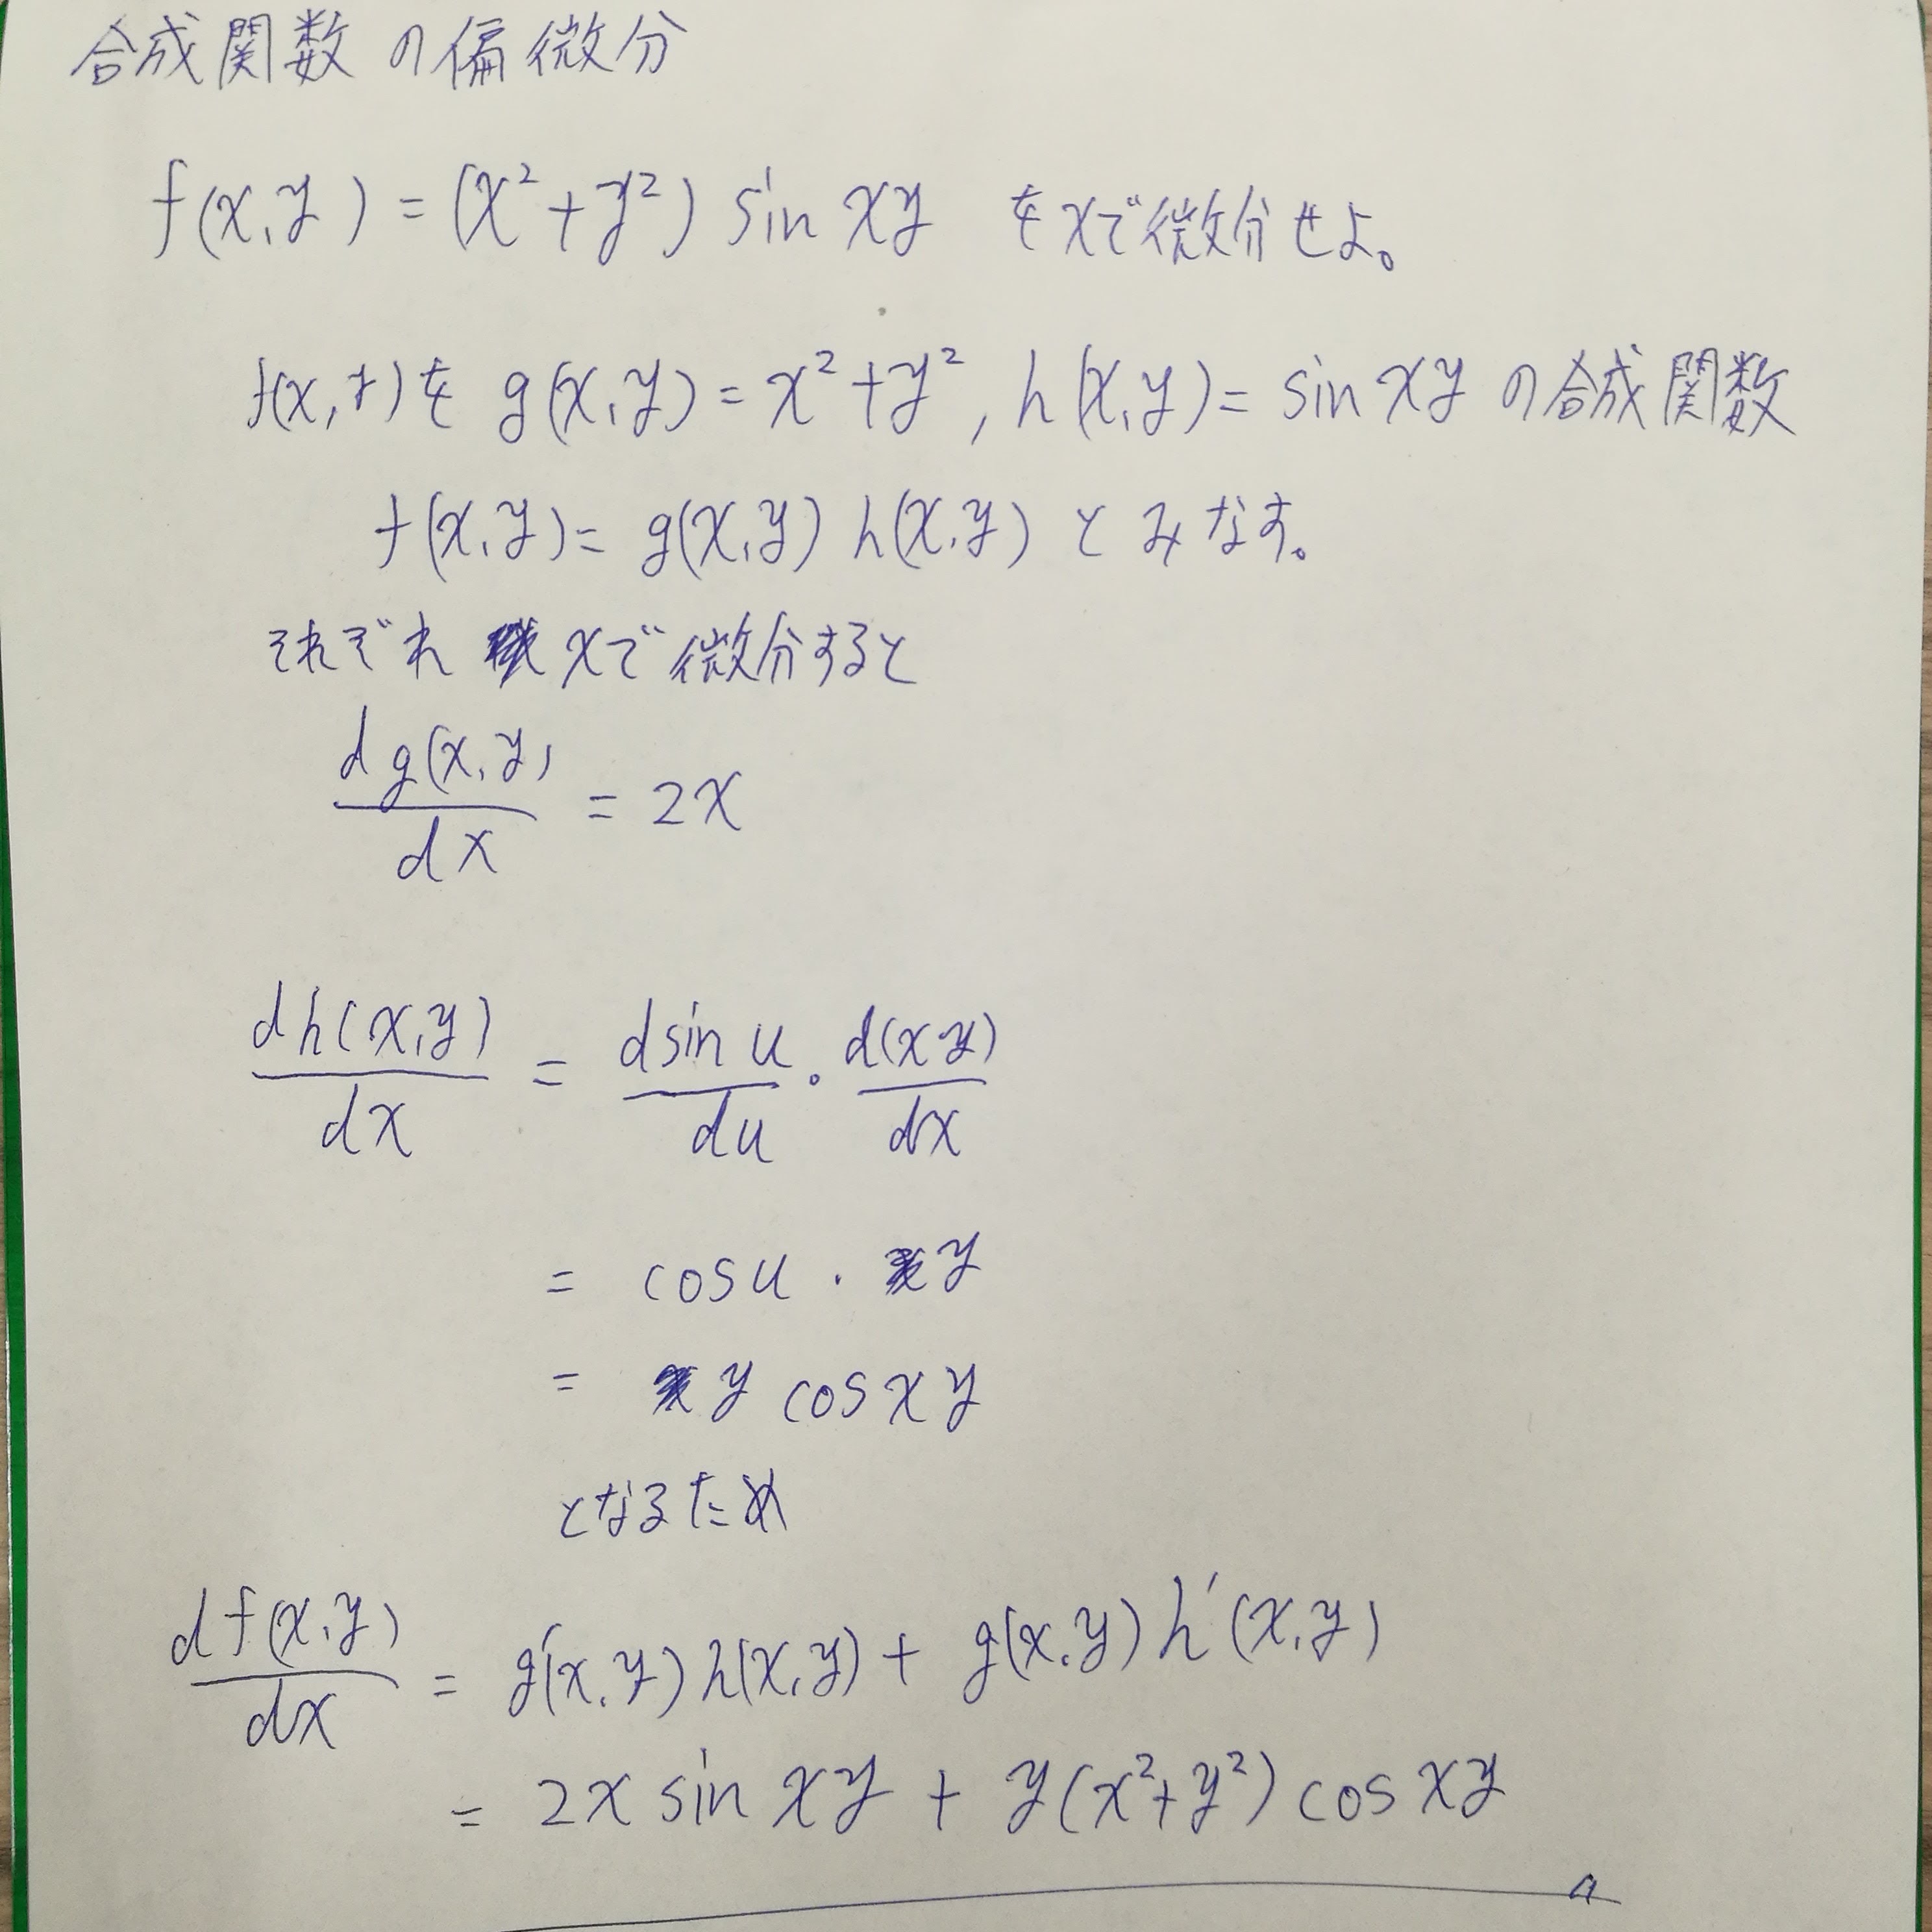 合成関数の偏微分
f(x,y) = (x²+y²) sin xy をxで微分せよ。
f(x,y)を g(x,y) = x²+y², h(x,y) = sin xy の合成関数
f(x,y) = g(x,y) h(x,y) とみなす。
それぞれ xで微分すると
dg(x,y)/dx = 2x
dh(x,y)/dx = dsin u/du · d(xy)/dx
= cos u · y
= y cos xy
となるため
df(x,y)/dx = g'(x,y) h(x,y) + g(x,y) h'(x,y)
= 2x sin xy + y(x²+y²) cos xy